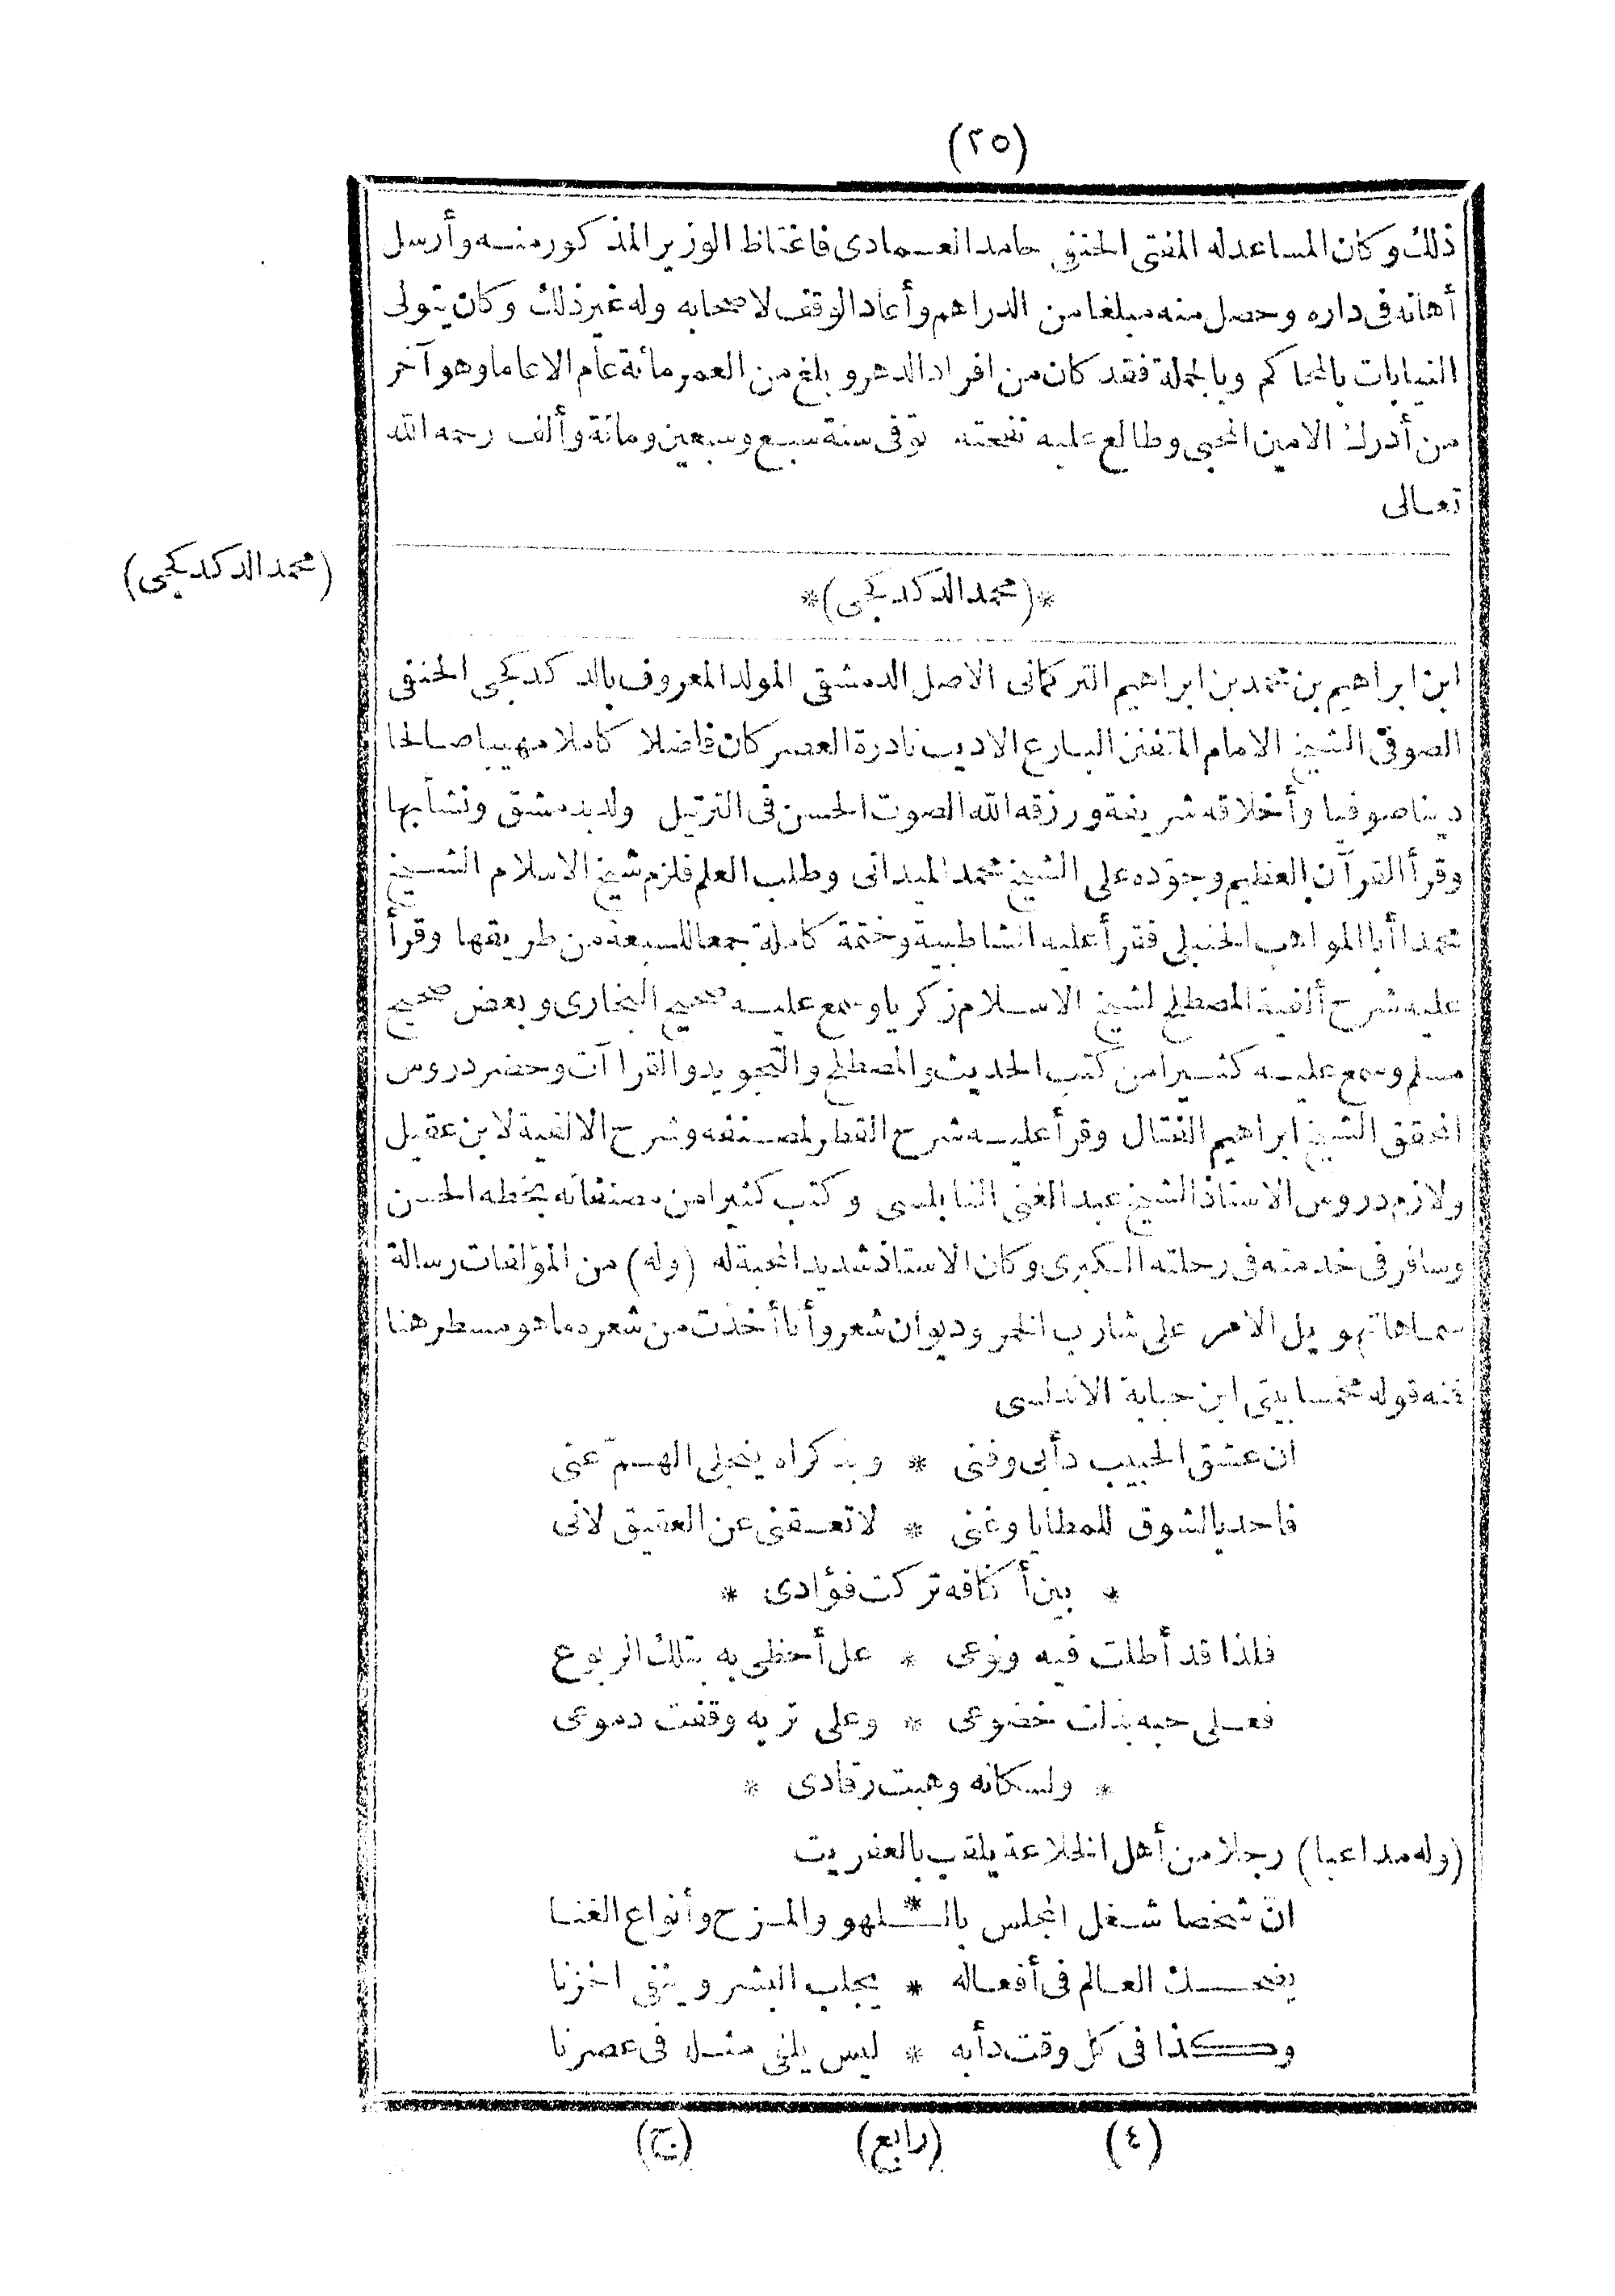 (٢٥)
ذلك وكان المساعد له المفتى الحنفى حامد العمادى فاغتاظ الوزير المذكور منه وأرسل
أهانه فى داره وحصل منه مبلغا من الدراهم وأعاد الوقف لاصحابه وله غير ذلك وكان يتولى
النيابات بالمحاكم وبالجملة فقد كان من افراد الدهر وبلغ من العمر مائة عام الاعاما وهو آخر
من أدرك الامين المحبى وطالع عليه نفحته توفى سنة سبع وسبعين ومائة وألف رحمه الله
تعالى
(محمد الدكدكجى)
*(محمد الدكدكجى)*
ابن ابراهيم بن محمد بن ابراهيم التركمانى الاصل الدمشقى المولد المعروف بالدكدكجى الحنفى
الصوفى الشيخ الامام المتفنن البارع الاديب نادرة العصر كان فاضلا كاملا مهيبا صالحا
دينا صوفيا وأخلاقه شريفة ورزقه الله الصوت الحسن فى الترتيل ولد بدمشق ونشأ بها
وقرأ القرآن العظيم وجوّده على الشيخ محمد الميدانى وطلب العلم فلزم شيخ الاسلام الشيخ
محمدا أبا المواهب الحنبلى فقرأ عليه الشاطبية وختمة كاملة جمعا للسبعة من طريقها وقرأ
عليه شرح ألفية المصطلح لشيخ الاسلام زكريا وسمع عليه صحيح البخارى وبعض صحيح
مسلم وسمع عليه كثيرا من كتب الحديث والمصطلح والتجويد والقراآت وحضر دروس
المحقق الشيخ ابراهيم الفتال وقرأ عليه شرح القطر لمصنفه وشرح الالفية لابن عقيل
ولازم دروس الاستاذ الشيخ عبد الغنى النابلسى وكتب كثيرا من مصنفاته بخطه الحسن
وسافر فى خدمته فى رحلته الكبرى وكان الاستاذ شديد المحبة له (وله) من المؤلفات رسالة
سماها تهويل الامر على شارب الخمر وديوان شعر وأنا أخذت من شعره ما هو مسطر هنا
فمنه قوله مخمسا بيتى ابن حبابة الاندلسى
ان عشق الحبيب دأبى وفنى * وبذكراه ينجلى الهمّ عنى
فاحد بالشوق للمطايا وغنى * لا تعقنى عن العقيق لانى
* بين أكنافه تركت فؤادى *
فلذا قد أطلت فيه ونوعى * عل أحظى به بتلك الربوع
فعلى حبه بذلت خضوعى * وعلى تربه وقفت دموعى
* ولسكانه وهبت رقادى *
(وله مداعبا) رجلا من أهل الخلاعة يلقب بالعفريت
انّ شخصا شغل المجلس بالـ * ـلهو والمزح وأنواع الغنا
يضحك العالم فى أفعاله * يجلب البشر وينفى الحزنا
وكذا فى كل وقت دأبه * ليس يلفى مثله فى عصرنا
(٤) (رابع) (ج)